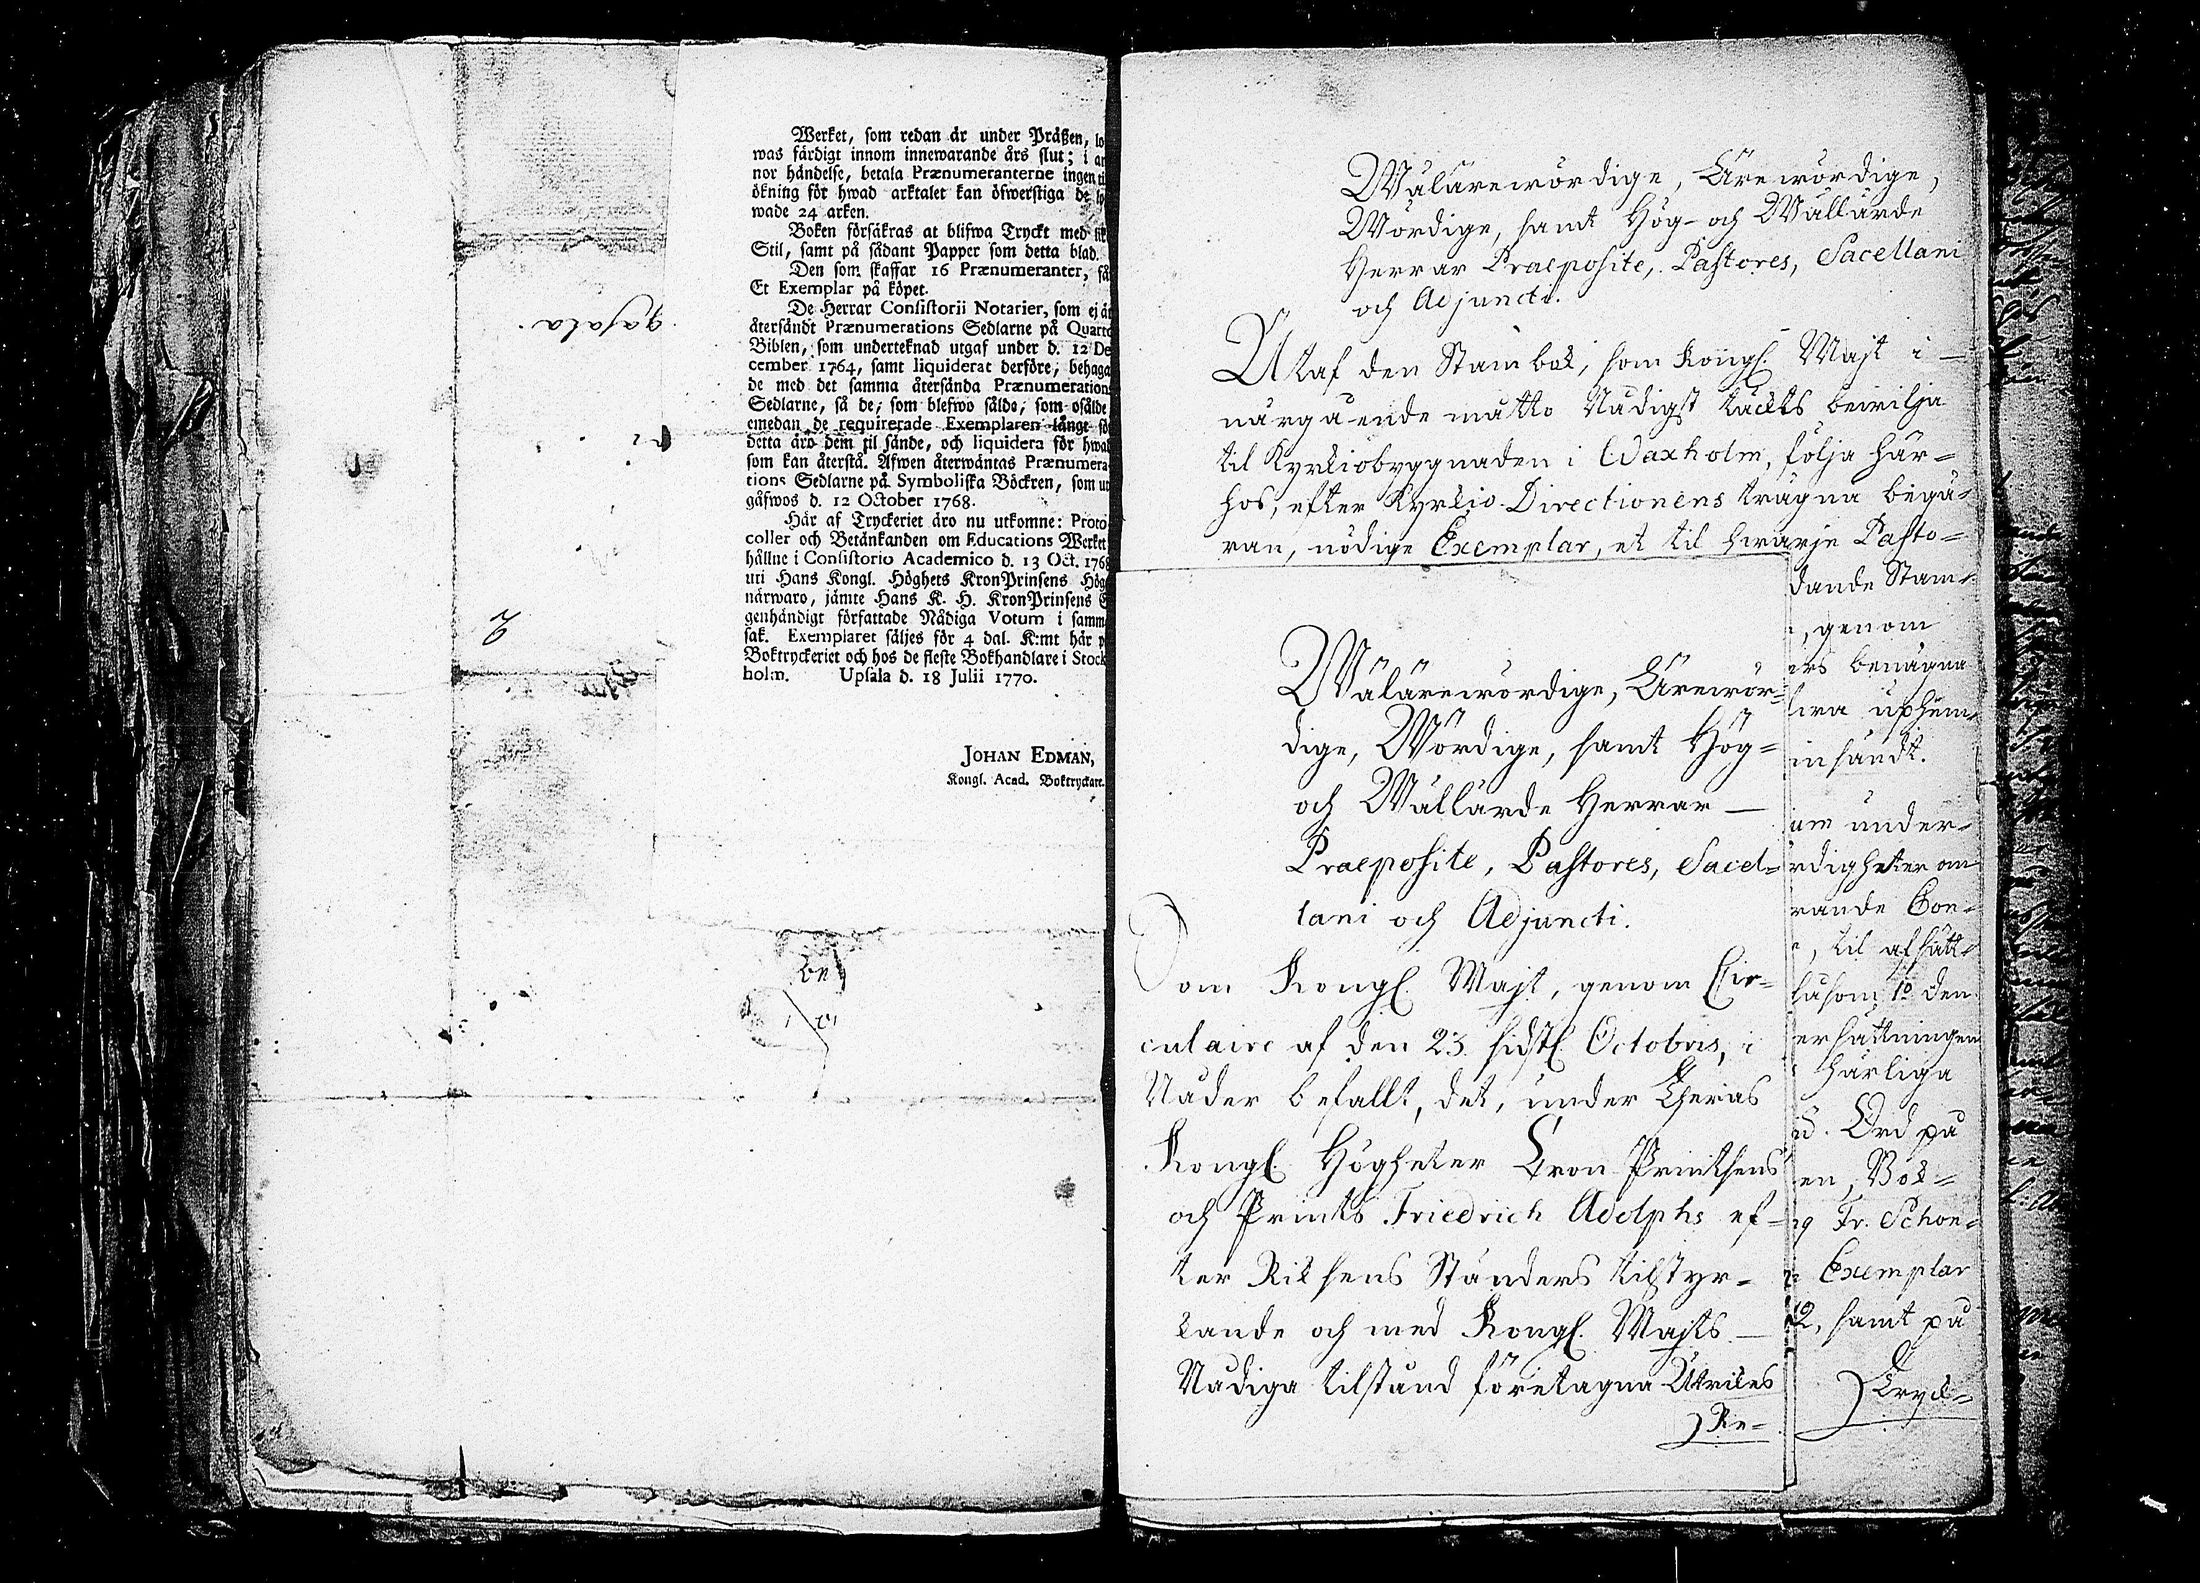 Werket, som redan är under Präßen, lo
was färdigt innom innewarande års slut; i an
nor händelse, betala Prænumeranterne ingen til
ökning för hwad arktalet kan öfwerstiga de lo
wade 24 arken.
Boken försäkras at blifwa Tryckt med lik
Stil, samt på sådant Papper som detta blad.
Den som skaffar 16 Prænumeranter, få
Et Exemplar på köpet.
De Herrar Consistorii Notarier, som ej än
återsändt Prænumerations Sedlarne på Quarto
Biblen, som underteknad utgaf under d. 12 De
cember 1764, samt liquiderat derföre, behaga
de med det samma återsända Prænumerations
Sedlarne, så de, som blefwo sålde, som osålde
emedan de requirerade Exemplaren långt för
detta äro dem til sände, och liquidera för hwad
som kan återstå. Äfwen återwäntas Prænumera-
tions Sedlarne på Symboliska Böckren, som ut
gåfwos d. 12 October 1768.
Här af Tryckeriet äro nu utkomne: Proto
coller och Betänkanden om Educations Werket
hållne i Consistorio Academico d. 13 Oct. 1768
uti Hans Kongl. Höghets KronPrinsens Höga
närwaro, jämte Hans K. H. KronPrinsens E
genhändigt författade Nådiga Votum i samma
sak. Exemplaret säljes för 4 dal. K:mt här på
Boktryckeriet och hos de fleste Bokhandlare i Stock
holm. Upsala d. 18 Julii 1770.
JOHAN EDMAN,
Kongl. Acad. Boktryckare.
Wälärewördige, Ärewördige,
Wördige, samt Hög- och Wällärde
Herrar Praeposite, Pastores, Sacellani
och Adjuncti.
Utaf den Stambok, som Kongl. Majt i
närgående måtto Nådigst täckts bewilja
til Kyrkiobyggnaden i Waxholm, följa här-
hos, efter Kyrkio-Directionens trägna begä-
ran, nödige Exemplar, et til hwarje Pasto-
dande Stam-
, genom
ers benägna
lwa uphem-
insändt.
um under-
rdigheter an
rande Con-
, til afsätt-
såsom 1o den
ersättningen
härliga
d. Ord på
en, Bok-
g Fr. Schon-
Exemplar
12, samt på
Tryck-
Wälärewördige, Ärewör-
dige, Wördige, samt Hög-
och Wällärde Herrar
Praeposite, Pastores, Sacel-
lani och Adjuncti.
Som Kongl. Majt, genom Cir-
culaire af den 23. sidstl. Octobris, i
Nåder befallt, det, under Theras
Kongl. Högheter Cron Printsens
och Prints Friedrich Adolphs ef-
ter Riksens Ständers tilstyr-
kande och med Kongl. Majts
Nådiga tilstånd företagna Utrikes
Re-